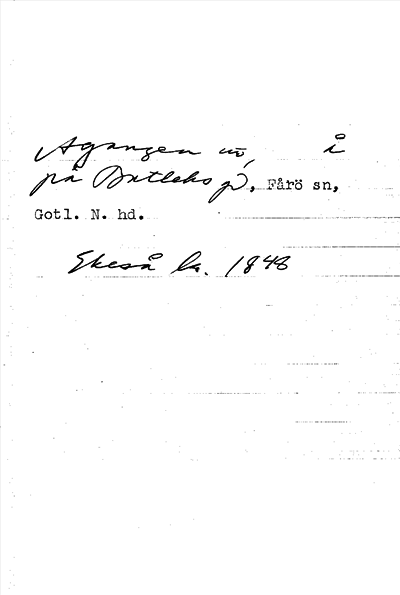 Ågangen uv, å
på Butleks gd, Fårö sn,
Gotl. N. hd.
Ekeså la. 1848